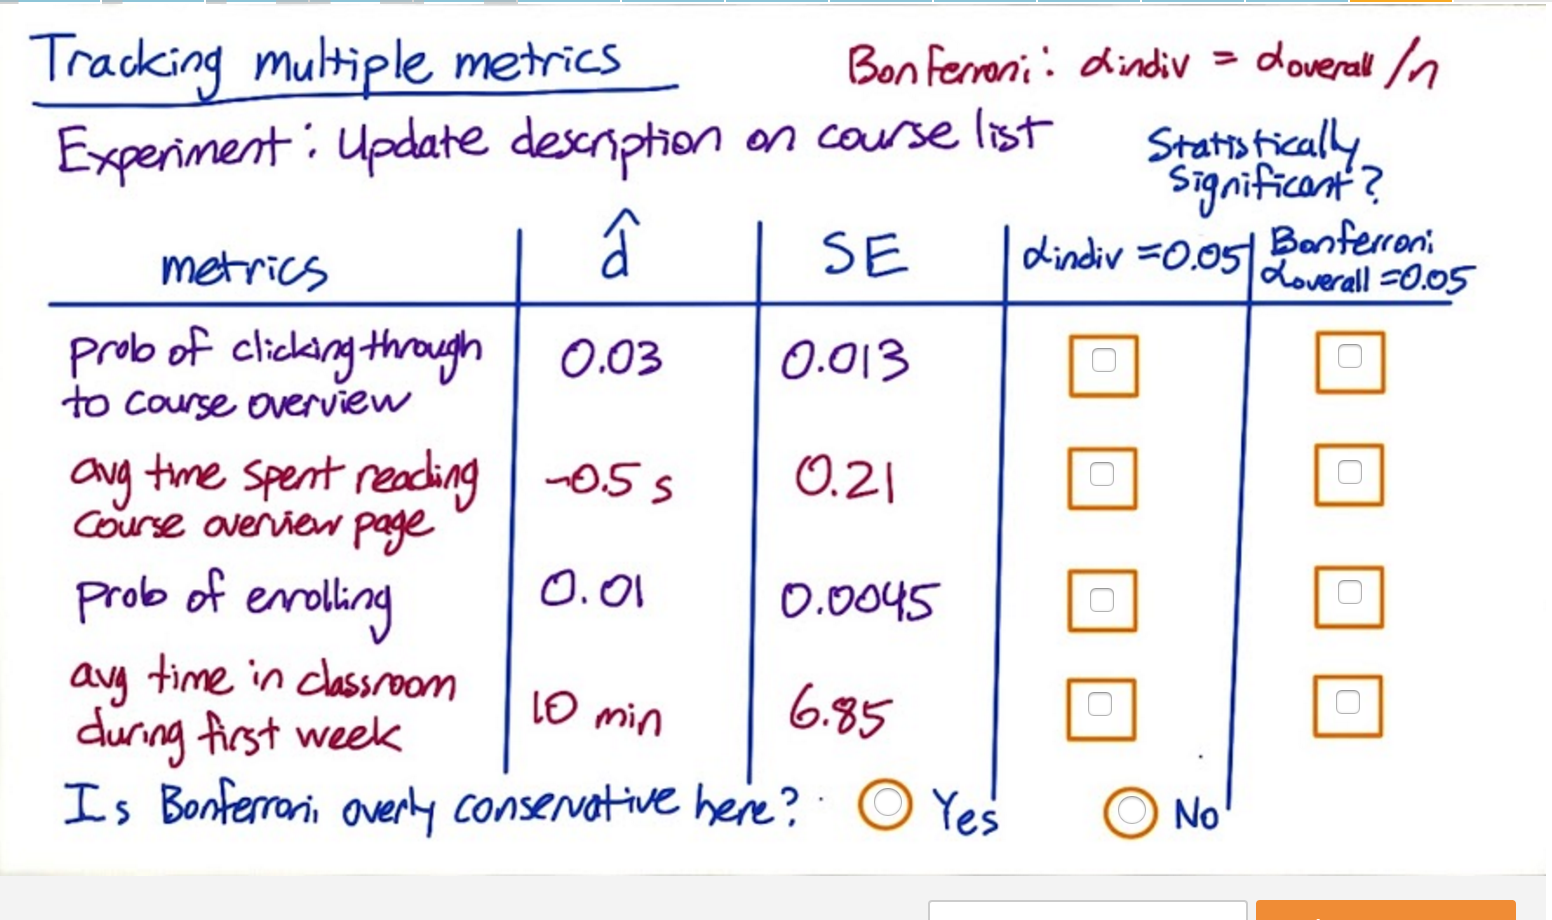 Tracking multiple metrics
Bonferroni: αindiv = αoverall/n
Experiment: Update description on course list
Statistically
Significant?
metrics
d̂
SE
αindiv =0.05
Bonferroni
αoverall =0.05
prob of clicking through
to course overview
0.03
0.013
avg time spent reading
course overview page
-0.5 s
0.21
prob of enrolling
0.01
0.0045
avg time in classroom
during first week
10 min
6.85
Is Bonferroni overly conservative here?
Yes
No